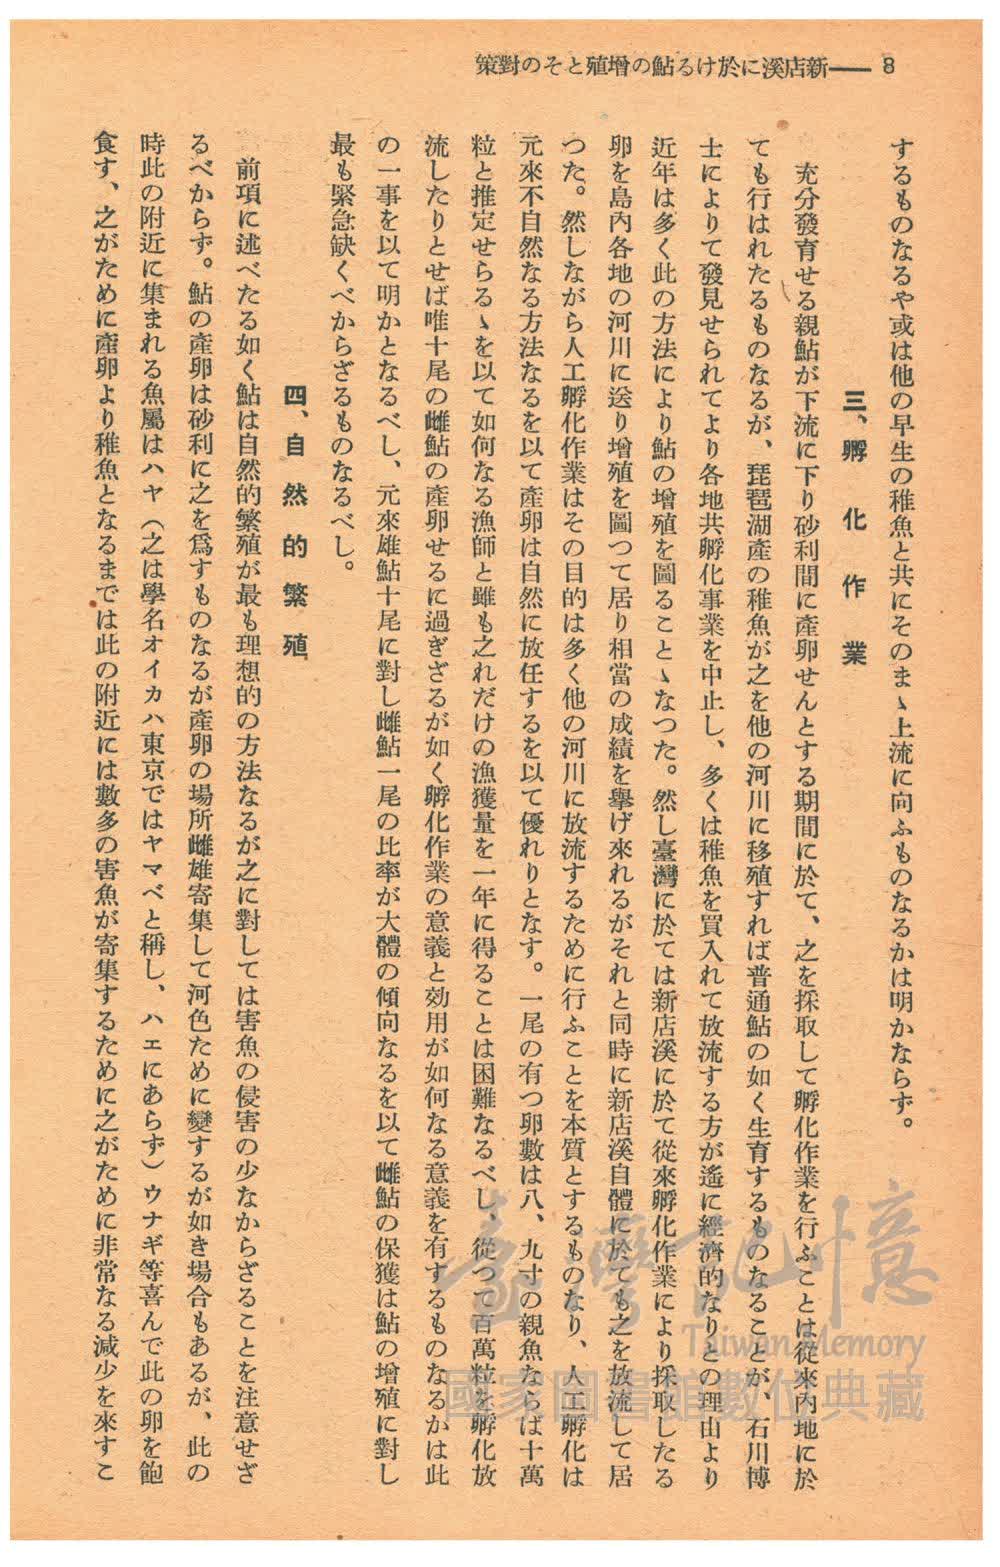 8 ――新店溪に於ける鮎の增殖とその對策
するものなるや或は他の早生の稚魚と共にそのまゝ上流に向ふものなるかは明かならず。
三、孵化作業
充分發育せる親鮎が下流に下り砂利間に產卵せんとする期間に於て、之を採取して孵化作業を行ふことは從來內地に於
ても行はれたるものなるが、琵琶湖產の稚魚が之を他の河川に移殖すれば普通鮎の如く生育するものなることが、石川博
士によりて發見せられてより各地共孵化事業を中止し、多くは稚魚を買入れて放流する方が遙に經濟的なりとの理由より
近年は多く此の方法により鮎の增殖を圖ることゝなつた。然し臺灣に於ては新店溪に於て從來孵化作業により採取したる
卵を島內各地の河川に送り增殖を圖つて居り相當の成績を擧げ來れるがそれと同時に新店溪自體に於ても之を放流して居
つた。然しながら人工孵化作業はその目的は多く他の河川に放流するために行ふことを本質とするものなり、人工孵化は
元來不自然なる方法なるを以て產卵は自然に放任するを以て優れりとなす。一尾の有つ卵數は八、九寸の親魚ならば十萬
粒と推定せらるゝを以て如何なる漁師と雖も之れだけの漁獲量を一年に得ることは困難なるべし、從つて百萬粒を孵化放
流したりとせば唯十尾の雌鮎の產卵せるに過ぎざるが如く孵化作業の意義と効用が如何なる意義を有するものなるかは此
の一事を以て明かとなるべし、元來雄鮎十尾に對し雌鮎一尾の比率が大體の傾向なるを以て雌鮎の保獲は鮎の增殖に對し
最も緊急缺くべからざるものなるべし。
四、自然的繁殖
前項に述べたる如く鮎は自然的繁殖が最も理想的の方法なるが之に對しては害魚の侵害の少なからざることを注意せざ
るべからず。鮎の產卵は砂利に之を爲すものなるが產卵の場所雌雄寄集して河色ために變するが如き場合もあるが、此の
時此の附近に集まれる魚屬はハヤ（之は學名オイカハ東京ではヤマベと稱し、ハエにあらず）ウナギ等喜んで此の卵を飽
食す、之がために產卵より稚魚となるまでは此の附近には數多の害魚が寄集するために之がために非常なる減少を來すこ
臺灣記憶
Taiwan Memory
國家圖書館數位典藏